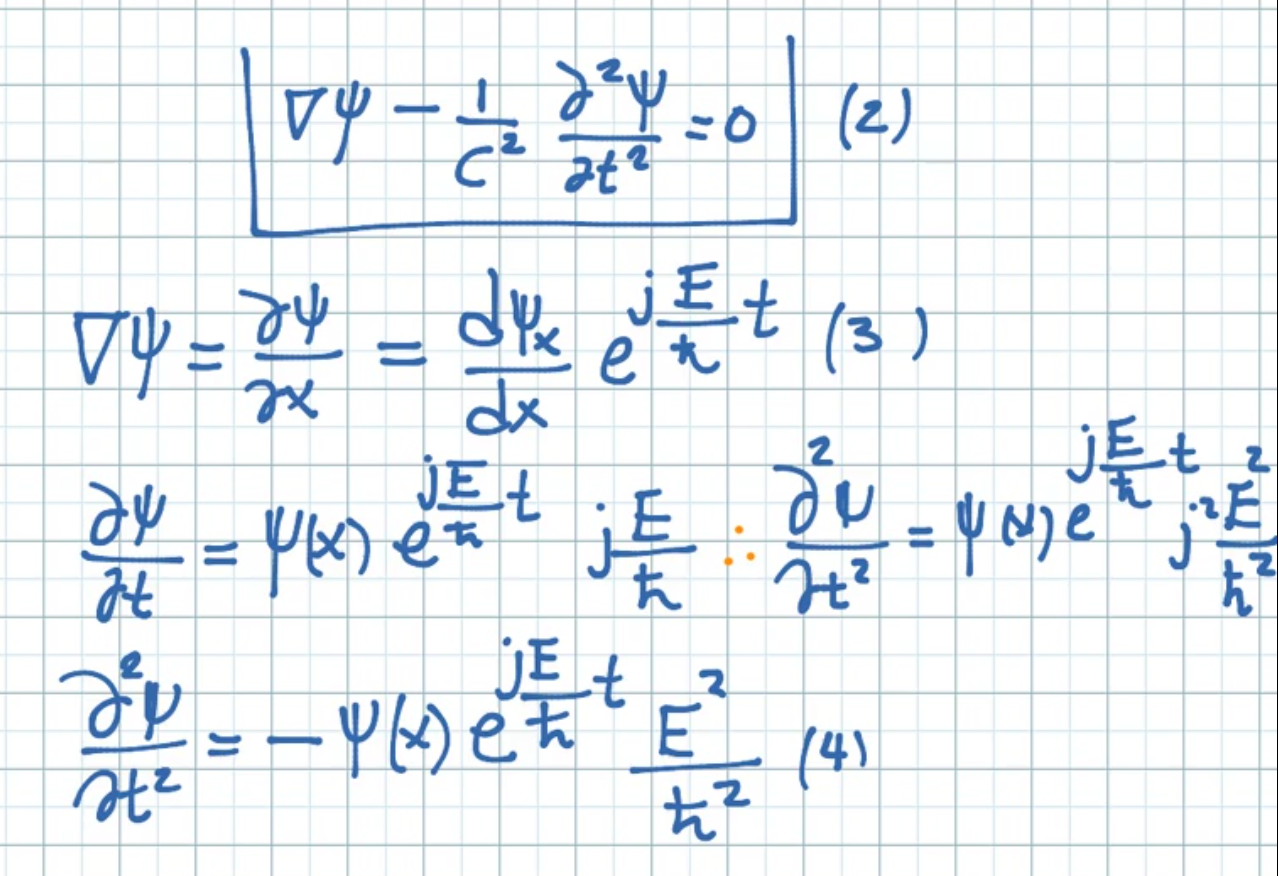 ∇ψ − 1/C² ∂²ψ/∂t² = 0 (2)
∇ψ = ∂ψ/∂x = dψₓ/dx e^(j E/ħ t) (3)
∂ψ/∂t = ψ(x) e^(j E/ħ t) j E/ħ ∴ ∂²ψ/∂t² = ψ(x) e^(j E/ħ t) j² E²/ħ²
∂²ψ/∂t² = − ψ(x) e^(j E/ħ t) E²/ħ² (4)